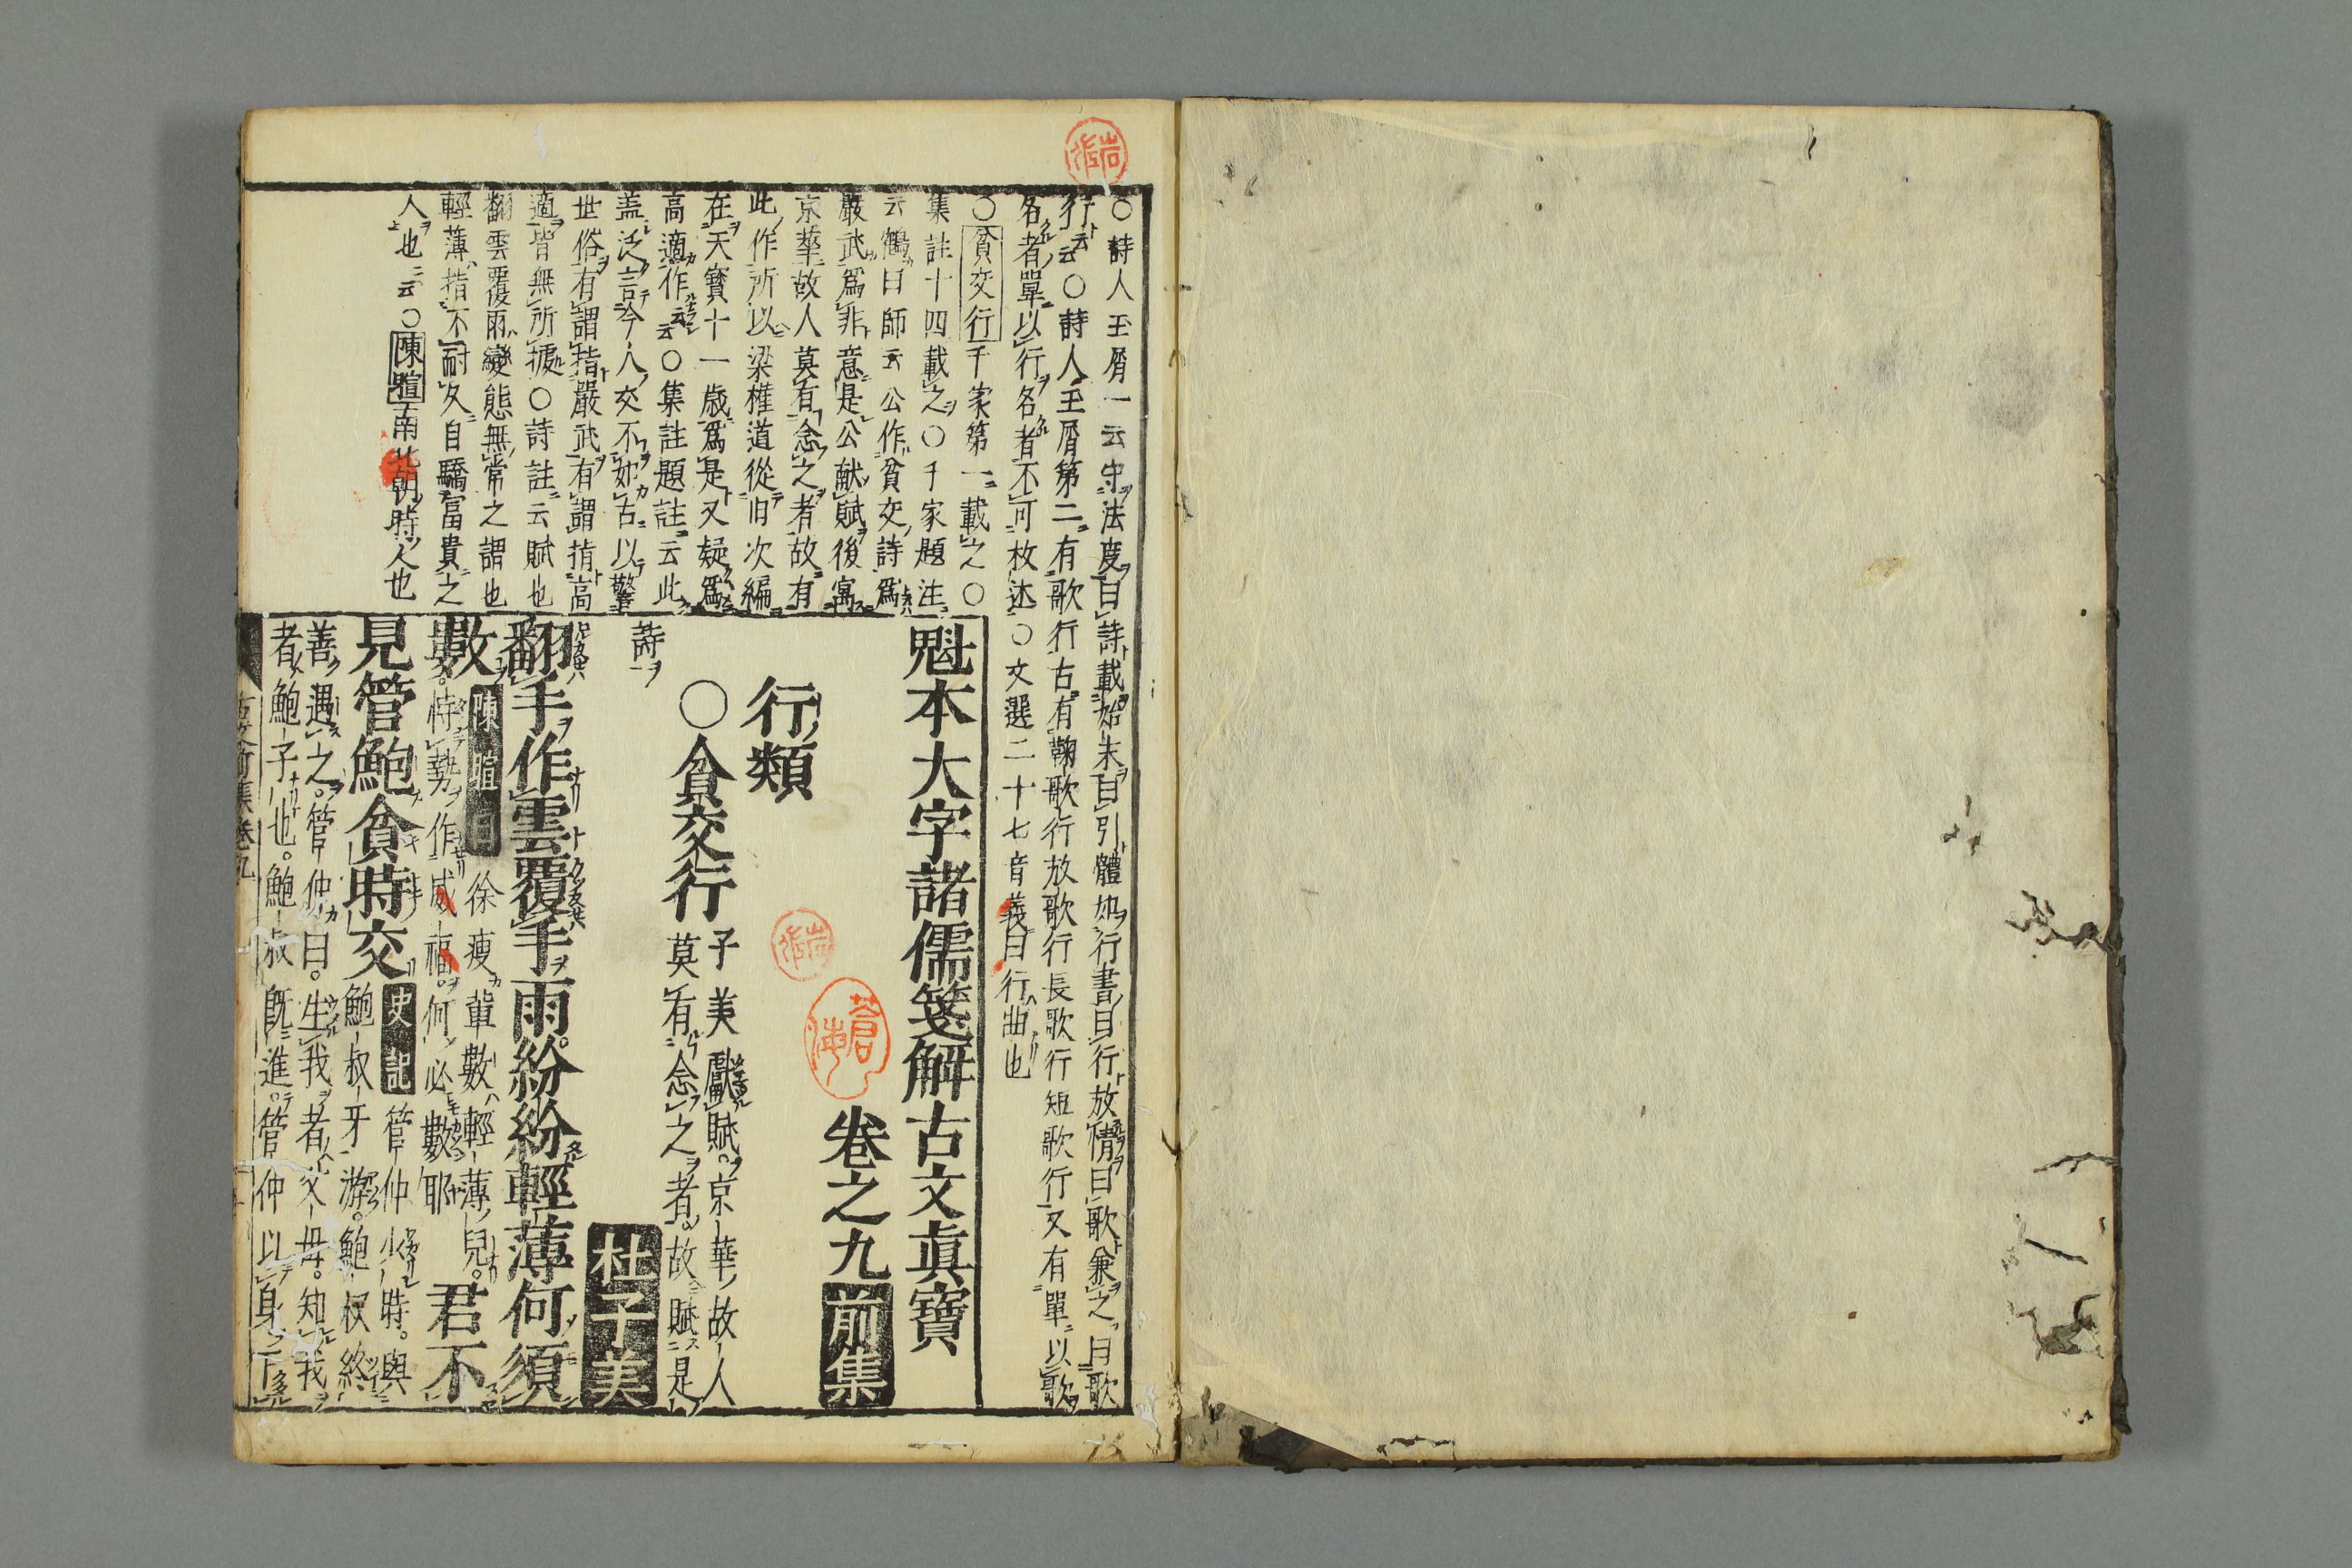 ○詩人玉屑一云守法度曰詩載始末曰引體如行書曰行放情曰歌兼之曰歌
行云云○詩人玉屑第二有歌行古有鞠歌行放歌行長歌行短歌行又有單以歌
名者單以行名者不可枚述○文選二十七音義曰行曲也
○貧交行千家第一載之○
集註十四載之○千家題注
云鶴曰師云公作貧交詩爲
嚴武爲非意是公献賦後寓
京華故人莫有念之者故有
此作所以梁權道從旧次編
在天寶十一歳爲是又疑爲
高適作云云○集註題註云此
盖泛言今人交不如古以警
世俗有謂指嚴武有謂指高
適皆無所據○詩註云賦也
翻雲覆雨變態無常之謂也
輕薄指不耐久自驕富貴之
人也云云○陳暄南北朝時人也
魁本大字諸儒箋解古文眞寶
卷之九前集
行類
○貧交行
子美獻賦。京華故人
莫有念之者。故賦是
詩
杜子美
翻手作雲覆手雨。紛紛輕薄何須
數
陳暄曰
徐瘦輩數輕薄兒。
恃勢作威福。何必數耶
君不
見管鮑貧時交
史記
管仲少時。與
鮑叔牙游。鮑叔終
善遇之。管仲曰。生我者父母。知我
者鮑子也。鮑叔既進。管仲以身下
集卷九